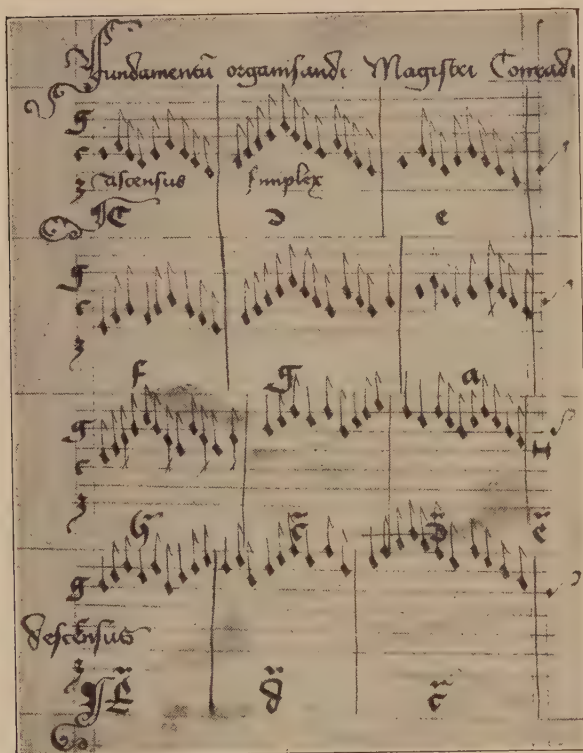 fundamentū organisandi Magistri Conradi
g
c
ascensus simplex
C d e
g
c
f g a
g
c
h c̄ d̄ ē
g
descensus
ē d̄ c̄